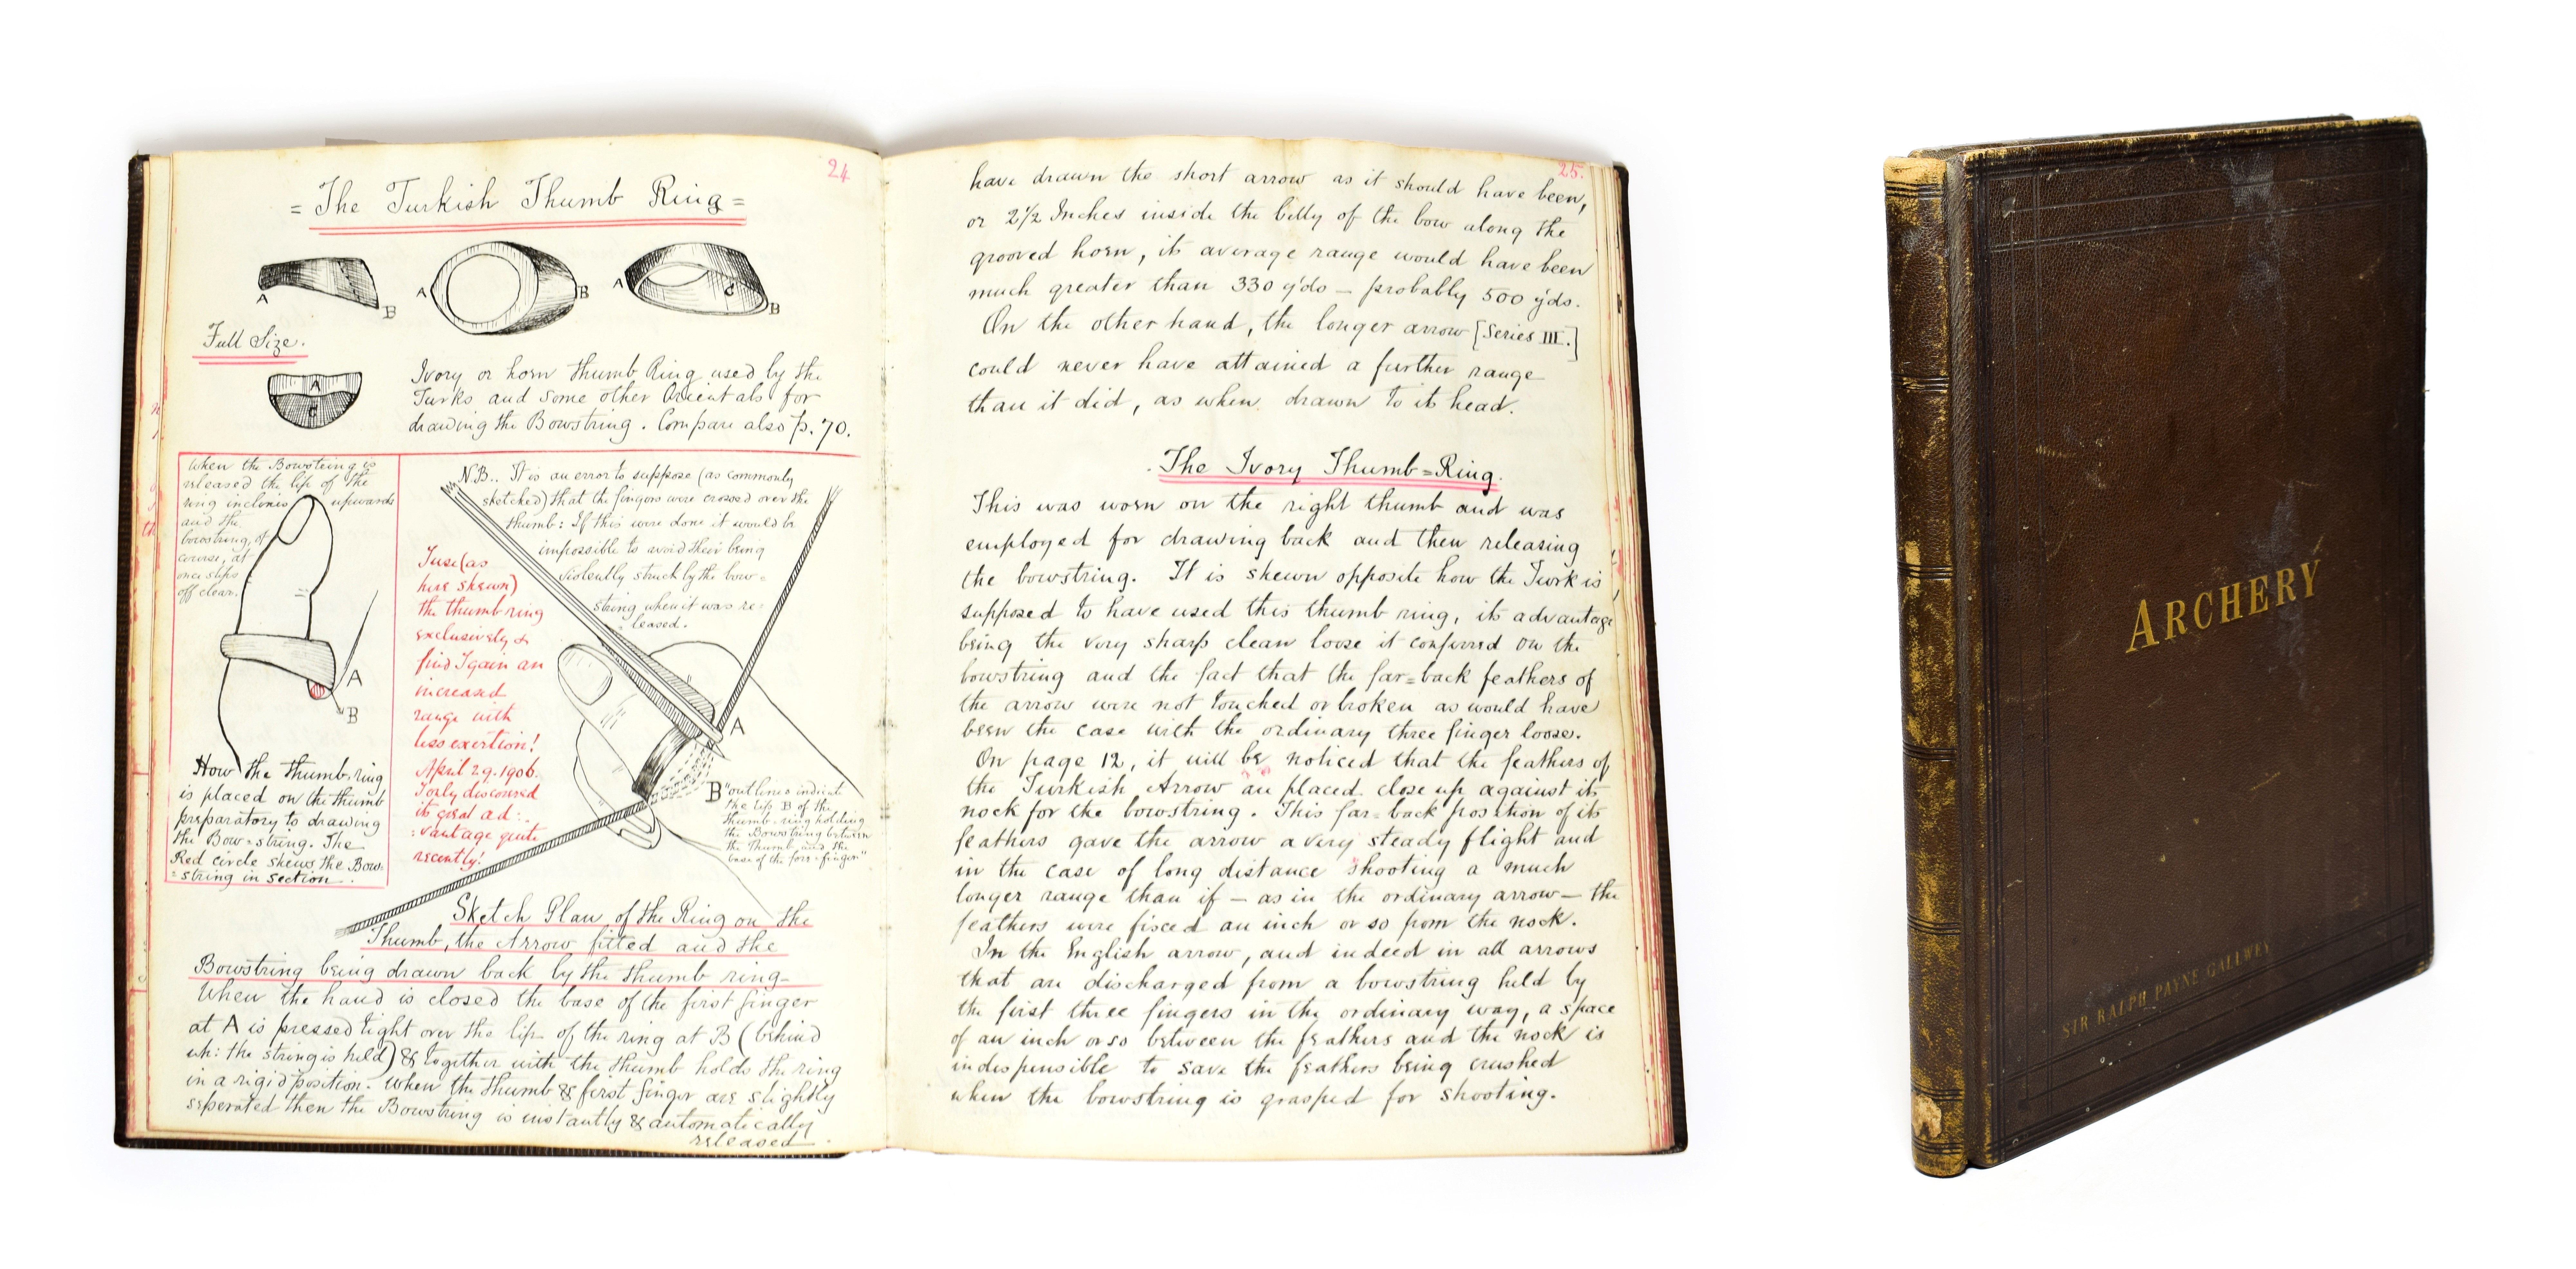 24
= The Turkish Thumb Ring =
A
B
A
B
A
C
B
Full Size.
A
C
Ivory or horn Thumb Ring used by the
Turks and some other Orientals for
drawing the Bowstring. Compare also p. 70.
When the Bowstring is
released the lip of the
ring inclines upwards
and the
bowstring, of
course, at
once slips
off clear.
A
B
How the thumb-ring
is placed on the thumb
preparatory to drawing
the Bow=string. The
Red circle shews the Bow-
=string in section.
N.B.. It is an error to suppose (as commonly
sketched) that the fingers were crossed over the
thumb: If this were done it would be
impossible to avoid their being
violently struck by the bow=
string when it was re-
leased.
I use (as
here shewn)
the thumb ring
exclusively &
find I gain an
increased
range with
less exertion!
April 29. 1906.
I only discovered
its great ad:.
:vantage quite
recently!
A
B
"outlines indicate
the lip B of the
thumb-ring holding
the Bowstring between
the Thumb and the
base of the fore-finger"
Sketch Plan of the Ring on the
Thumb, the Arrow fitted and the
Bowstring being drawn back by the thumb ring-
When the hand is closed the base of the first finger
at A is pressed tight over the lip of the ring at B (behind
wh: the string is held) & together with the thumb holds the ring
in a rigid position. When the thumb & first finger are slightly
seperated then the Bowstring is instantly & automatically
released.
25.
have drawn the short arrow as it should have been,
or 2½ Inches inside the belly of the bow along the
grooved horn, its average range would have been
much greater than 330 yds — probably 500 yds.
On the other hand, the longer arrow [Series III.]
could never have attained a further range
than it did, as when drawn to its head.
The Ivory Thumb=Ring.
This was worn on the right thumb and was
employed for drawing back and then releasing
the bowstring. It is shewn opposite how the Turk is
supposed to have used this thumb ring, its advantage
being the very sharp clean loose it conferred on the
bowstring and the fact that the far=back feathers of
the arrow were not touched or broken as would have
been the case with the ordinary three finger loose.
On page 12, it will be noticed that the feathers of
the Turkish Arrow are placed close up against its
nock for the bowstring. This far=back position of its
feathers gave the arrow a very steady flight and
in the case of long distance shooting a much
longer range than if — as in the ordinary arrow — the
feathers were fixed an inch or so from the nock.
In the English arrow, and indeed in all arrows
that are discharged from a bowstring held by
the first three fingers in the ordinary way, a space
of an inch or so between the feathers and the nock is
indespensible to save the feathers being crushed
when the bowstring is grasped for shooting.
ARCHERY
SIR RALPH PAYNE GALLWEY